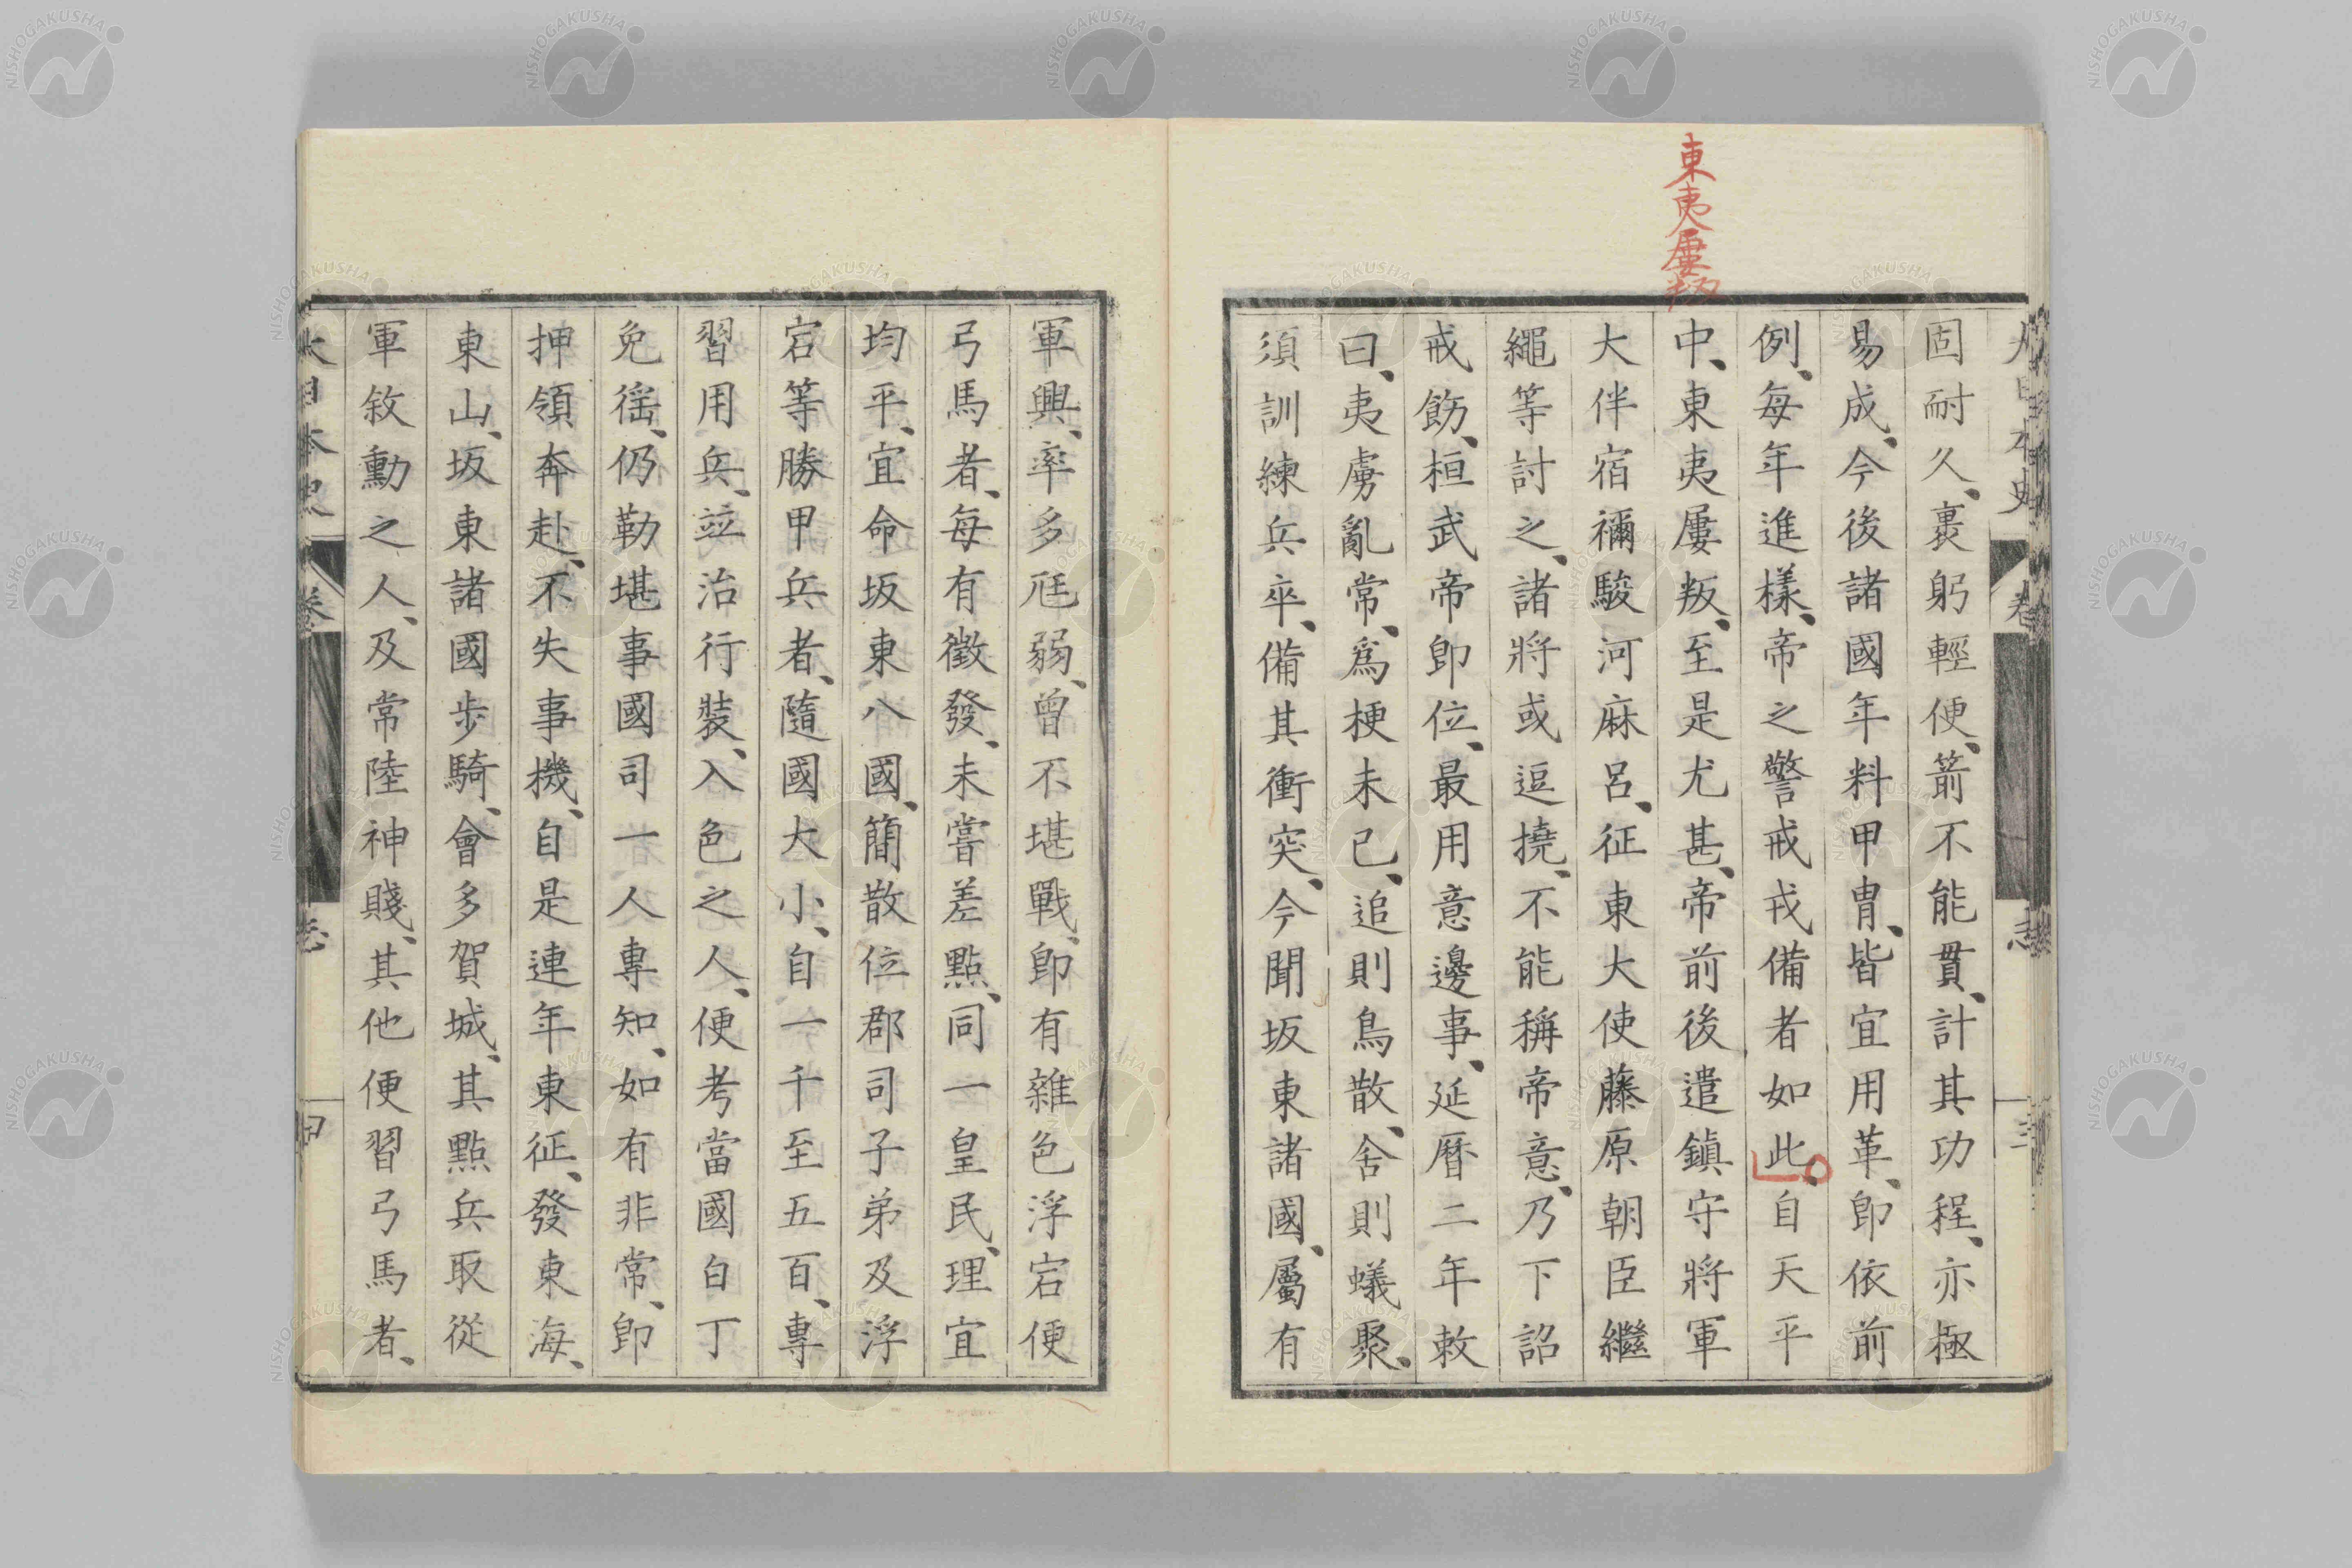 東夷屢叛
固耐久、裹躬輕便、箭不能貫、計其功程、亦極
易成、今後諸國年料甲冑、皆宜用革、卽依前
例、每年進樣、帝之警戒戎備者如此、自天平
中、東夷屢叛、至是尤甚、帝前後遣鎭守將軍
大伴宿禰駿河麻呂、征東大使藤原朝臣繼
繩等討之、諸將或逗撓、不能稱帝意、乃下詔
戒飭、桓武帝卽位、最用意邊事、延曆二年敕
曰、夷虜亂常、爲梗未已、追則鳥散、舍則蟻聚、
須訓練兵卒、備其衝突、今聞坂東諸國、屬有
軍興、率多尫弱、曾不堪戰、卽有雜色浮宕便
弓馬者、每有徵發、未嘗差點、同一皇民、理宜
均平、宜命坂東八國、簡散位郡司子弟及浮
宕等勝甲兵者、隨國大小、自一千至五百、專
習用兵、竝治行裝、入色之人、便考當國白丁
免徭、仍勒堪事國司一人專知、如有非常、卽
押領奔赴、不失事機、自是連年東征、發東海、
東山、坂東諸國步騎、會多賀城、其點兵取從
軍敘勳之人、及常陸神賤、其他便習弓馬者、
大日本史 卷 志